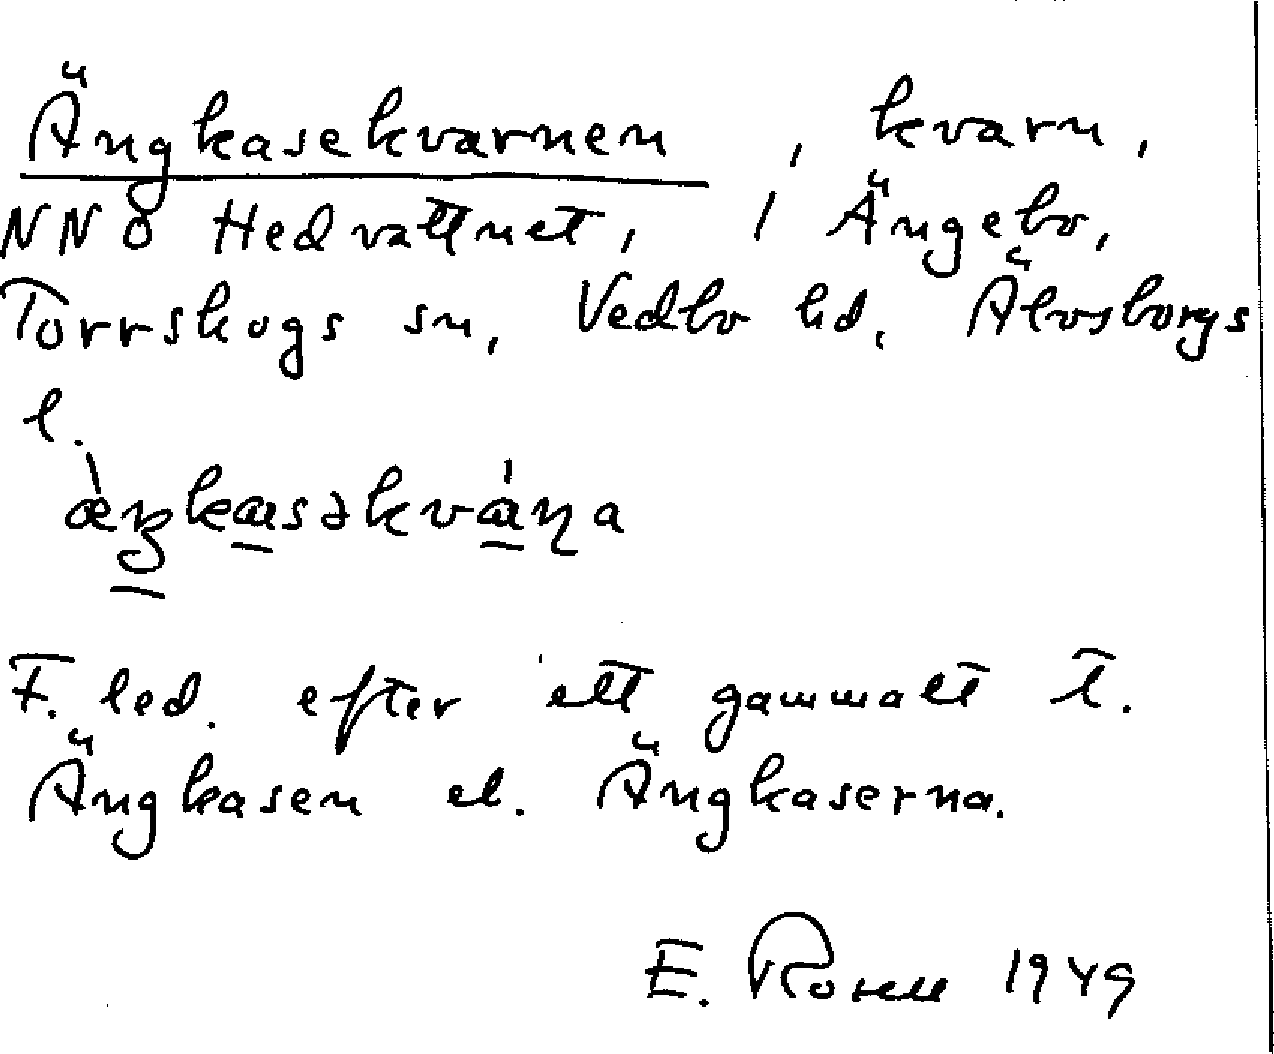 Ängkasekvarnen, kvarn,
NNO Hedvattnet, i Ängebo,
Torrskogs sn, Vedbo hd, Älvsborgs
l.
F. led. efter ett gammalt t.
Ängkasen el. Ängkaserna.
E. Rosell 1949